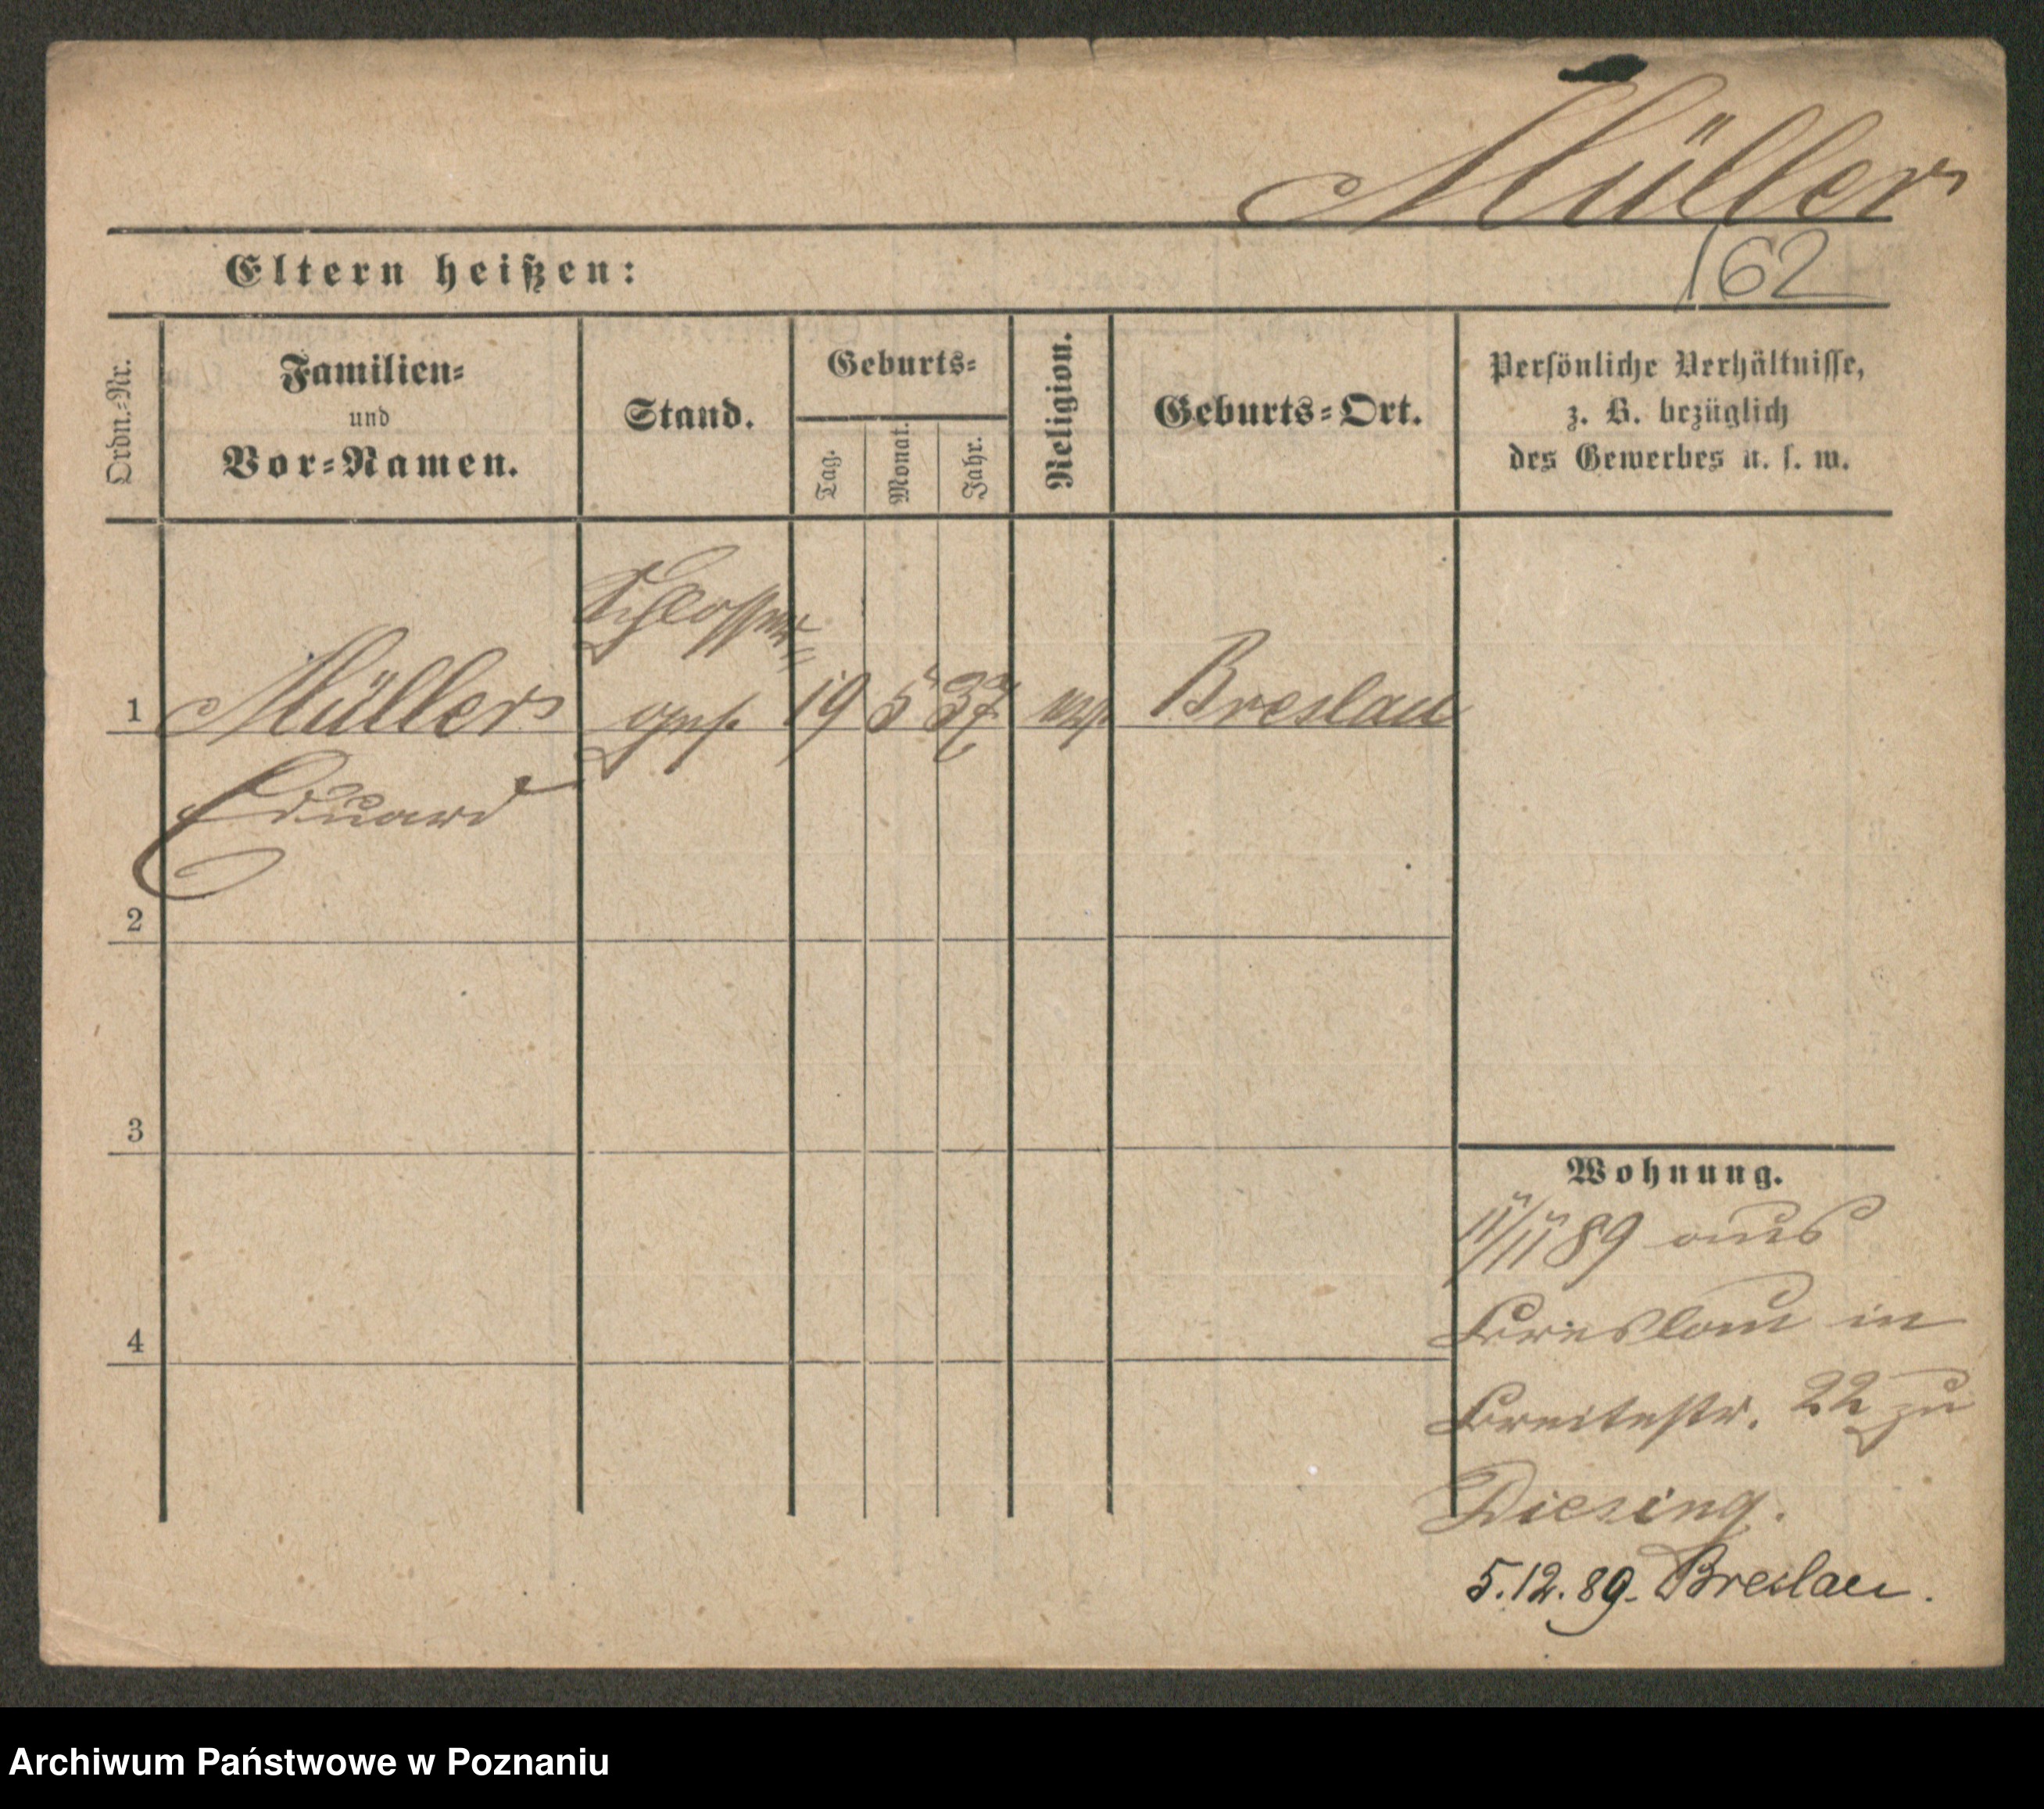 Müller
162
Eltern heißen:
Ordn.-Nr.
Familien-
und
Vor-Namen.
Stand.
Geburts-
Tag.
Monat.
Jahr.
Religion.
Geburts-Ort.
Persönliche Verhältnisse,
z. B. bezüglich
des Gewerbes u. s. w.
Schlosser-
1 Müller ges. 19 5 37 Breslau
Eduard
2
3
4
Wohnung.
11/11 89 aus
Breslau in
Breitestr. 22 zu
Diesing.
5.12.89. Breslau.
Archiwum Państwowe w Poznaniu